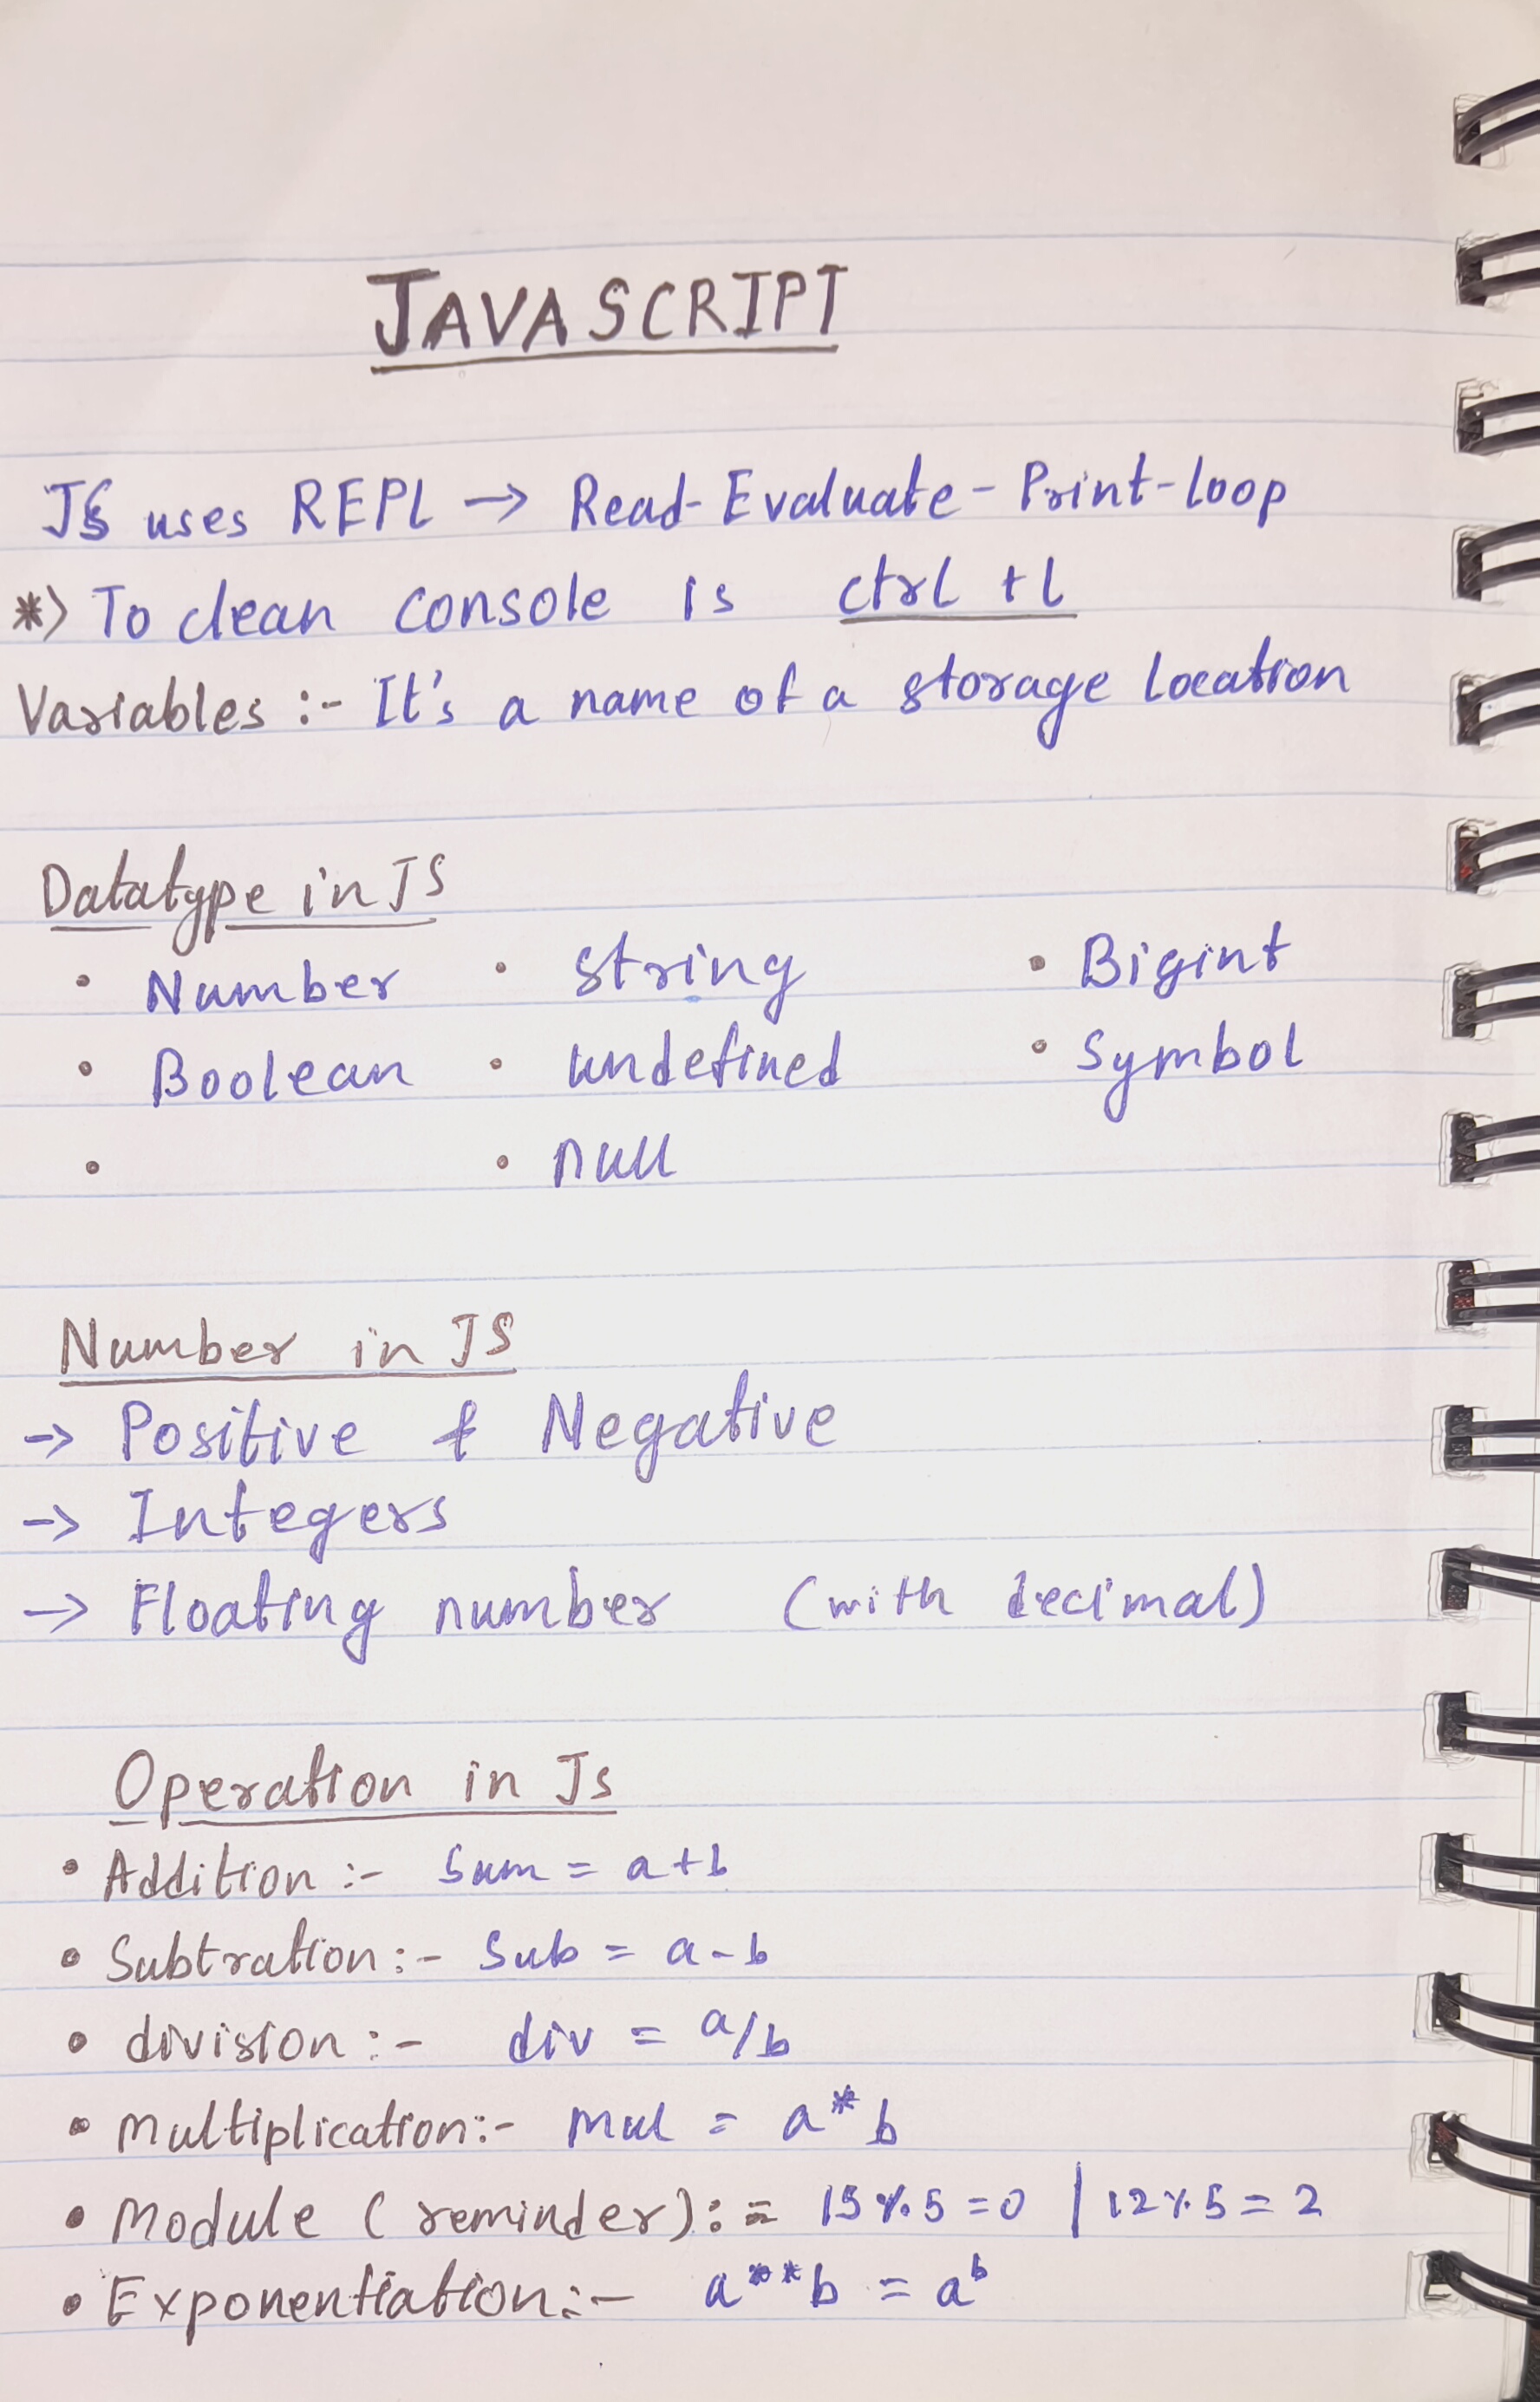 JAVASCRIPT
JS uses REPL → Read-Evaluate-Print-loop
*> To clean console is ctrl +l
Variables :- It's a name of a storage location
Datatype in JS
• Number • string • Bigint
• Boolean • undefined • Symbol
• • null
Number in JS
→ Positive & Negative
→ Integers
→ Floating number (with decimal)
Operation in Js
• Addition :- Sum = a+b
• Subtration :- Sub = a-b
• division :- div = a/b
• Multiplication :- mul = a*b
• Module (reminder) := 15%5=0 | 12%5=2
• Exponentiation :- a**b = aᵇ